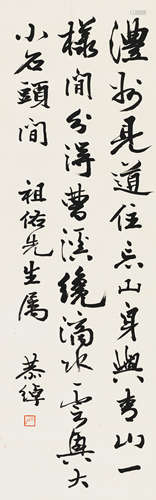 澧州見道住忘山身與青山一
樣閒分得曹溪繞滴水雲與大
小石頭間
祖佑先生屬 恭綽